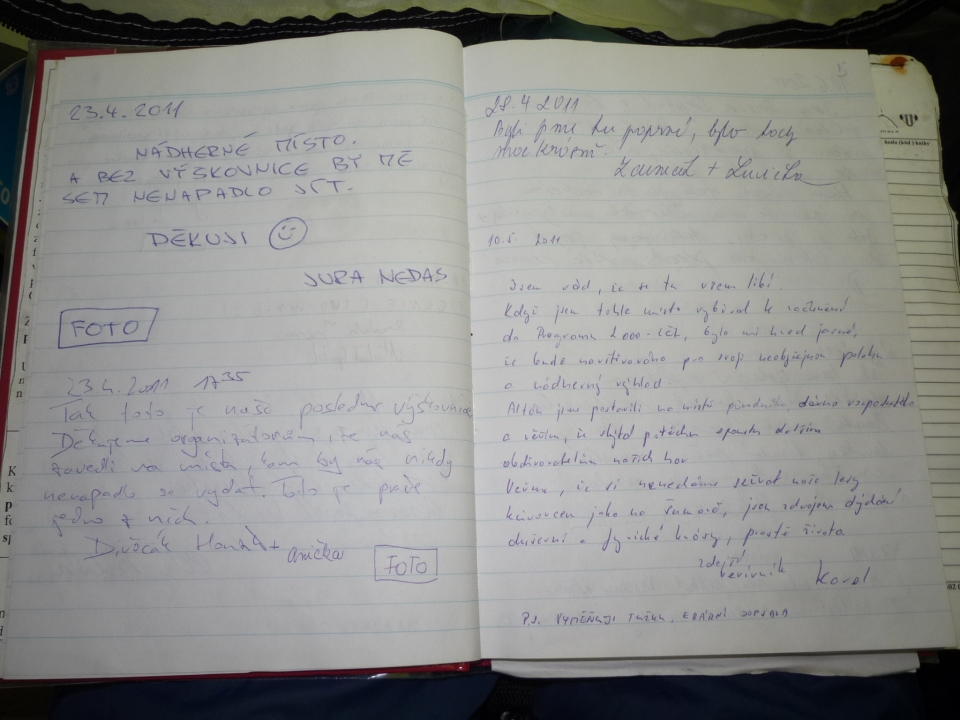 23.4.2011
NÁDHERNÉ MÍSTO.
A BEZ VÝŠKOVNICE BY MĚ
SEM NENAPADLO JÍT.
DĚKUJI
JURA NEDAS
FOTO
23.4.2011 17 35
Tak toto je naše poslední výškovnice
Děkujeme organizátorům, že nás
zavedli na místa, kam by nás nikdy
nenapadlo se vydat. Toto je prave
jedno z nich.
Divočák Honza + Anička
FOTO
5
28.4 2011
Byli jsme tu poprvé, bylo tady
moc krásně.
+
10.5. 2011
Jsem rád, že se tu všem líbí.
Když jsem tohle místo vybíral k začlenění
do Programu 2000-ích, bylo mi hned jasné,
že bude navštěvováno pro svoji neobyčejnou polohu
a nádherný výhled.
Altán jsme postavili na místě původního, dávno rozpadlého
a věřím, že slouží potěchu spoustě dalším
obdivovatelům našich hor.
Věřím, že si nenecháme sežrat naše lesy
kůrovcem jako na Šumavě, jsou zdrojem dýchání
duševní a fyzické krásy, prostě života
zdejší
revírník Karel
P.S. VYMĚŇUJI TUŽKU,
"U"